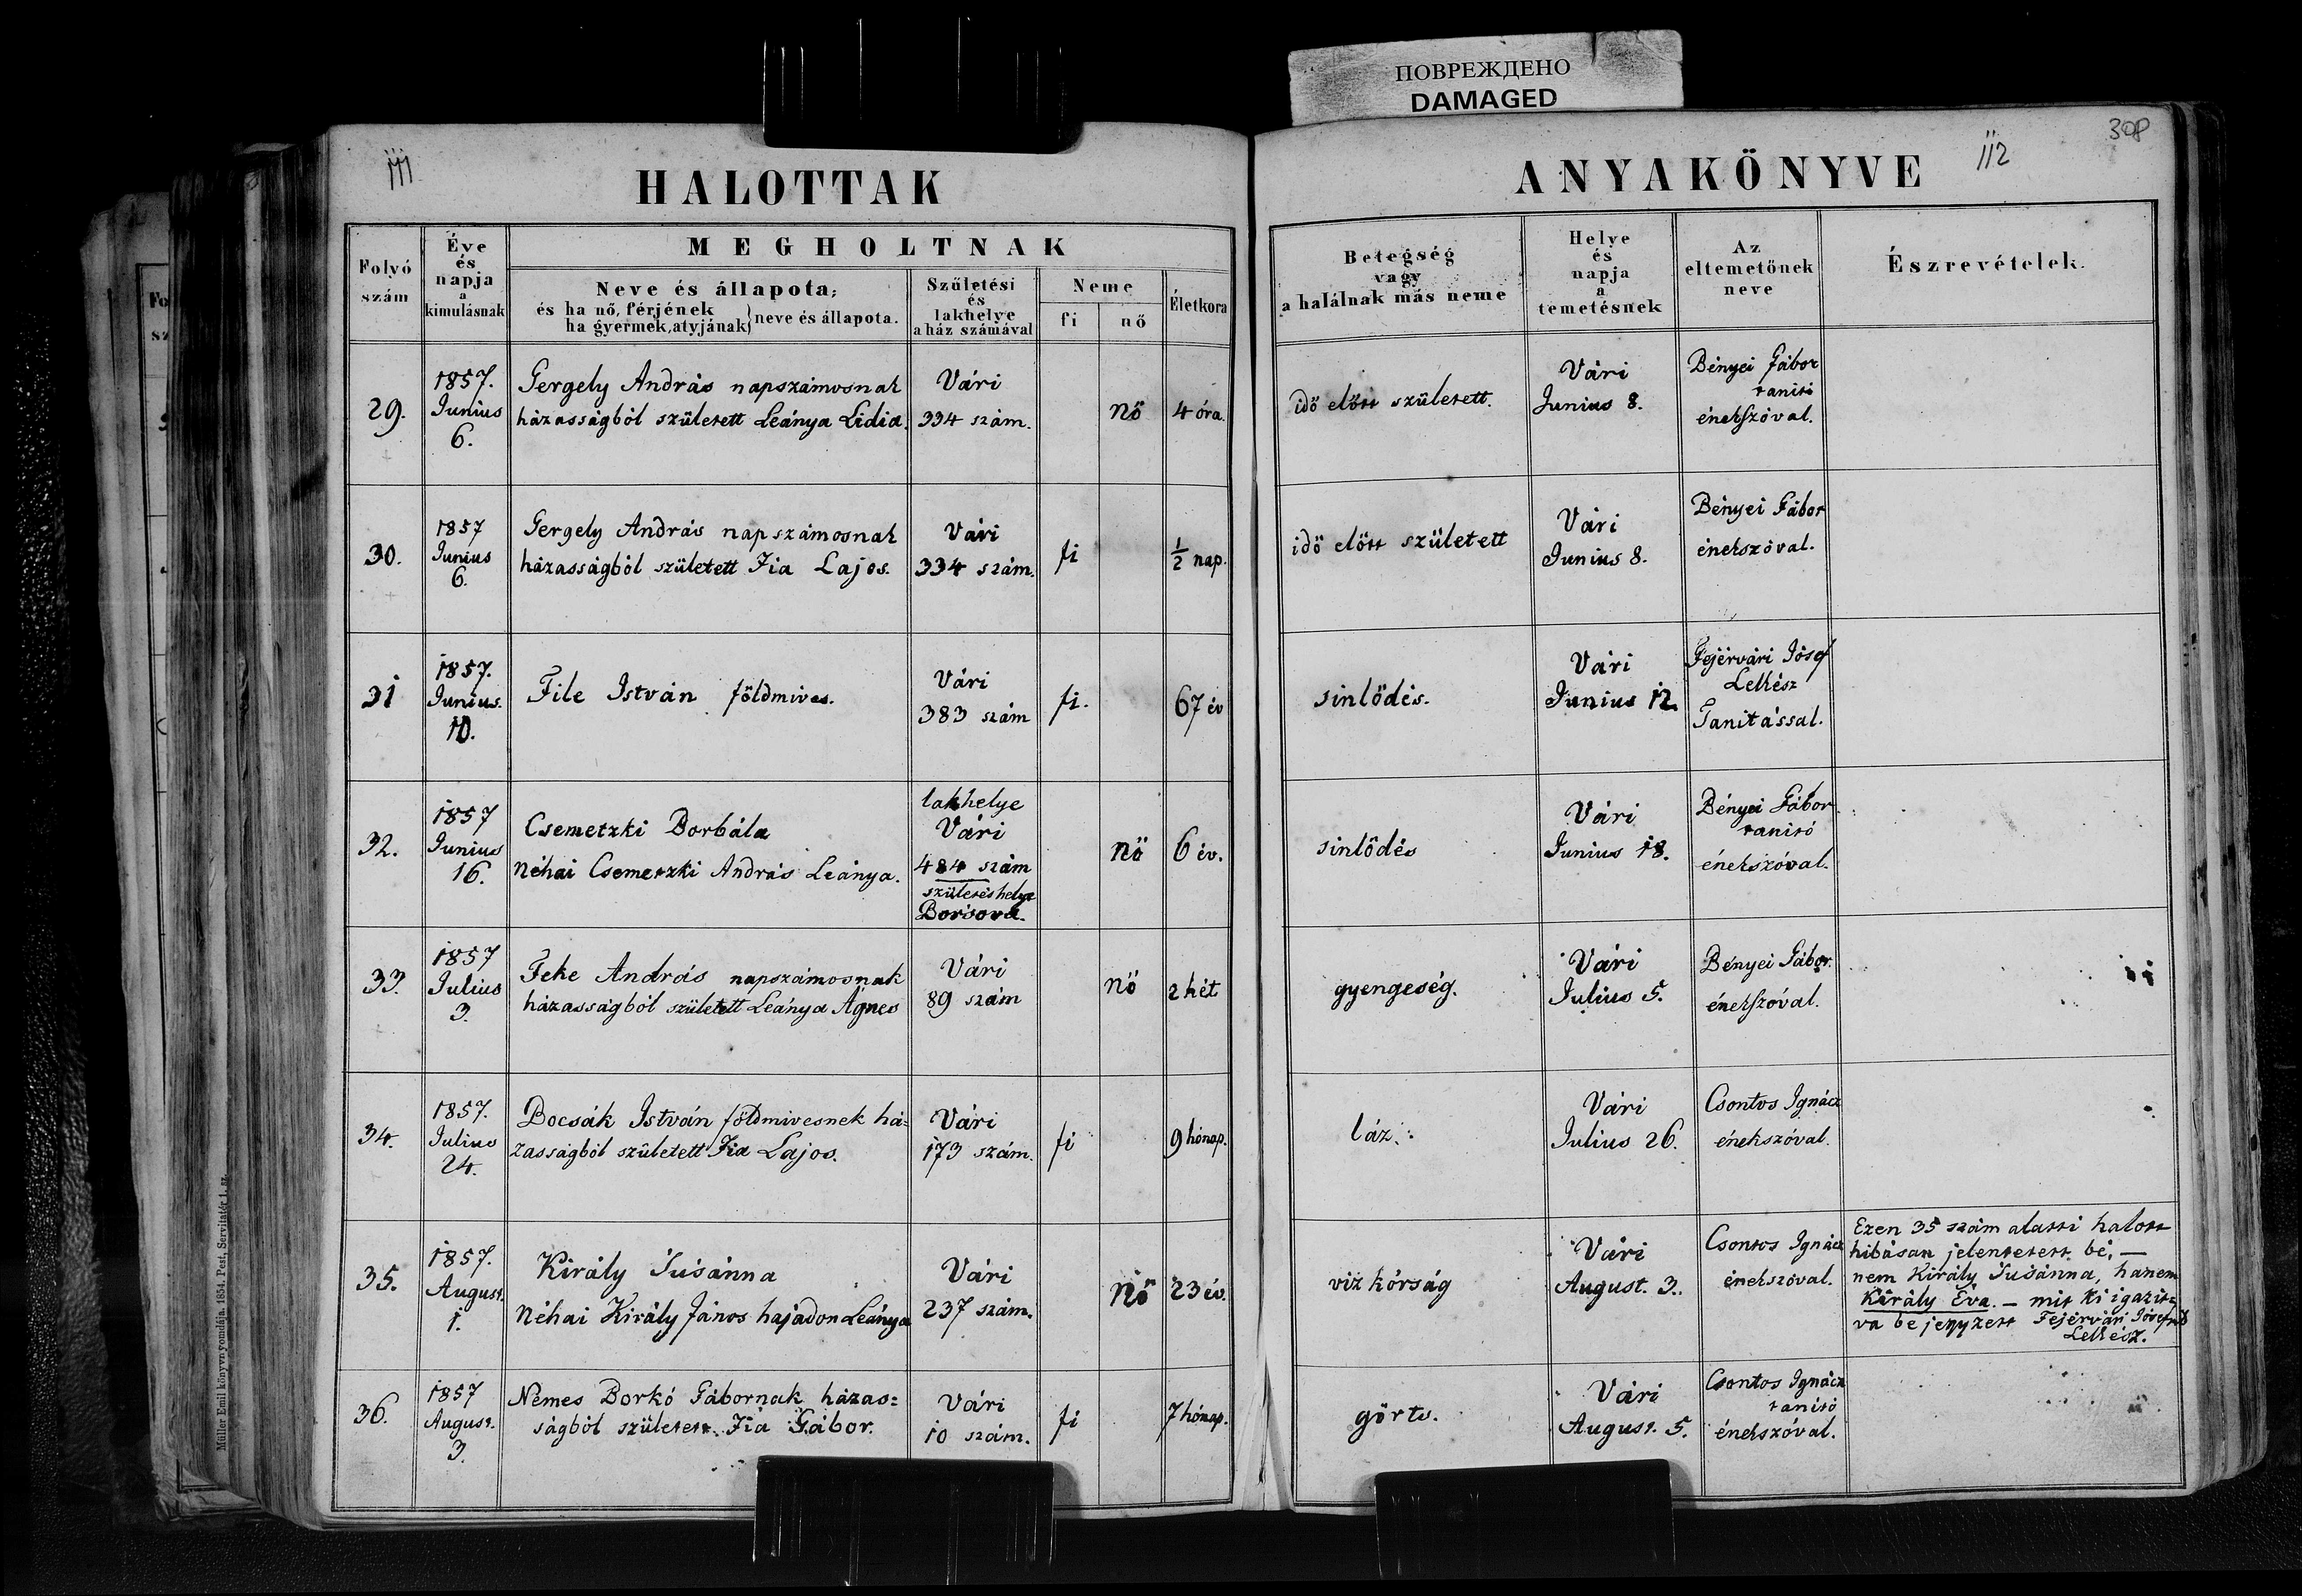 ПОВРЕЖДЕНО
DAMAGED
111
HALOTTAK
Folyó
szám
Éve
és
napja
a
kimulásnak
MEGHOLTNAK
Neve és állapota;
és ha nő, férjének
ha gyermek, atyjának } neve és állapota.
Születési
és
lakhelye
a ház számával
Neme
fi
nő
Életkora
29.
1857.
Junius
6.
Gergely András napszámosnak
házasságból született Leánya Lidia.
Vári
334 szám.
nő
4 óra.
30.
1857
Junius
6.
Gergely András napszámosnak
házasságból született Fia Lajos.
Vári
334 szám.
fi
½ nap.
31
1857.
Junius.
10.
File István földmives.
Vári
383 szám
fi.
67 év
32.
1857
Junius
16.
Csemetzki Borbála
néhai Csemetzki András Leánya.
lakhelye
Vári
484 szám
születéshelye
Borsova.
nő
6 év.
33.
1857
Julius
3.
Feke András napszámosnak
házasságból született Leánya Ágnes
Vári
89 szám
nő
2 hét
34.
1857.
Julius
24.
Bocsák István földmivesnek há=
zasságból született Fia Lajos.
Vári
173 szám.
fi
9 hónap.
35.
1857.
August.
1.
Király Susánna
Néhai Király János hajadon Leánya
Vári
237 szám.
nő
23 év.
36.
1857
August.
3.
Nemes Borkó Gábornak házas=
ságból született Fia Gábor.
Vári
10 szám.
fi
7 hónap.
Müller Emil könyvnyomdája. 1854. Pest, Servitatér 1. sz.
ANYAKÖNYVE
112
308
Betegség
vagy
a halálnak más neme
Helye
és
napja
a
temetésnek
Az
eltemetőnek
neve
Észrevételek.
idő előtt született.
Vári
Junius 8.
Bényei Gábor
tanitó
énekszóval.
idő előtt született
Vári
Junius 8.
Bényei Gábor
énekszóval.
sinlődés.
Vári
Junius 12.
Fejérvári Jósef
Lelkész
Tanitással.
sinlődés
Vári
Junius 18.
Bényei Gábor
tanitó
énekszóval.
gyengeség.
Vári
Julius 5.
Bényei Gábor.
énekszóval.
láz.
Vári
Julius 26.
Csontos Ignácz
énekszóval.
viz kórság
Vári
August. 3.
Csontos Ignácz
énekszóval.
Ezen 35 szám alatti halott
hibásan jelentetett bé, —
nem Király Susánna, hanem
Király Éva. — mit ki igazit=
va bejegyzett Fejérvári Jósef
Lelkész.
görts.
Vári
August. 5.
Csontos Ignácz
tanitó
énekszóval.